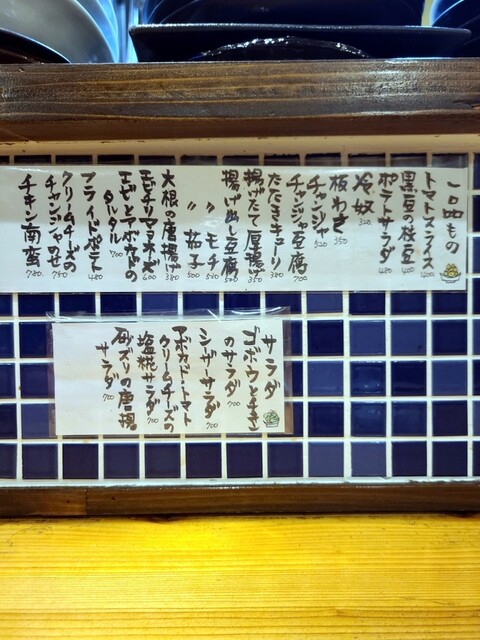 一品もの
トマトスライス 400
黒豆の枝豆 400
ポテトサラダ 480
冷奴 320
板わさ 350
チャンジャ 520
チャンジャ豆腐 700
たたきキューリ 380
揚げたて厚揚げ 350
揚げ出し豆腐 500
〃 モチ 580
〃 茄子 580
大根の唐揚げ 380
エビチリマヨネーズ 600
エビとアボカドの
タルタル 700
フライドポテト 480
クリームチーズの
チャンジャのせ 780
チキン南蛮 780
サラダ
ゴボウと
のサラダ 700
シーザーサラダ 700
アボカド・トマト
クリームチーズの
塩糀サラダ 700
砂ズリの唐揚
サラダ 700